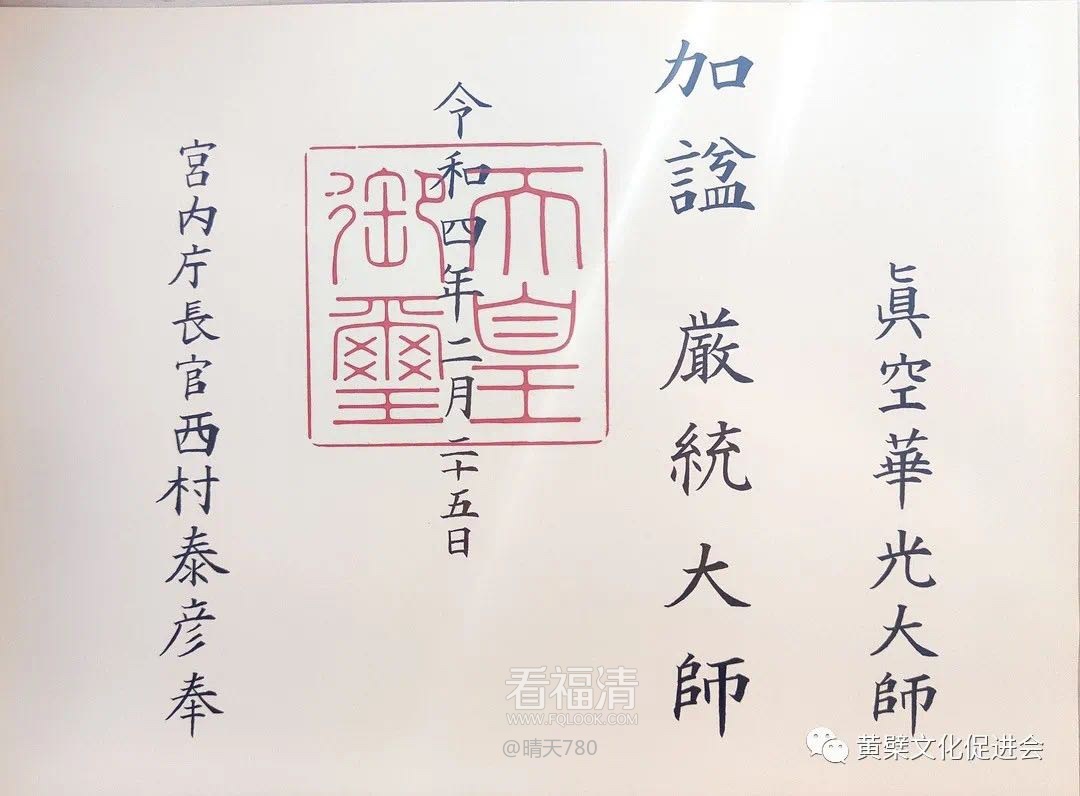 眞空華光大師
加諡 厳統大師
令和四年二月二十五日
天皇御璽
宮内庁長官西村泰彦奉
看福清
WWW.FQLOOK.COM
@晴天780
黄檗文化促进会